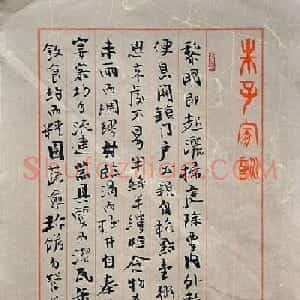 朱子家訓
黎明即起灑掃庭除要內外整
便息關鎖門戶必親自檢點一粥
思來處不易半絲半縷恒念物力
未雨而綢繆毋臨渴而掘井自奉
宴客切勿流連器具質而潔瓦缶
飲食約而精園蔬愈珍饈勿營